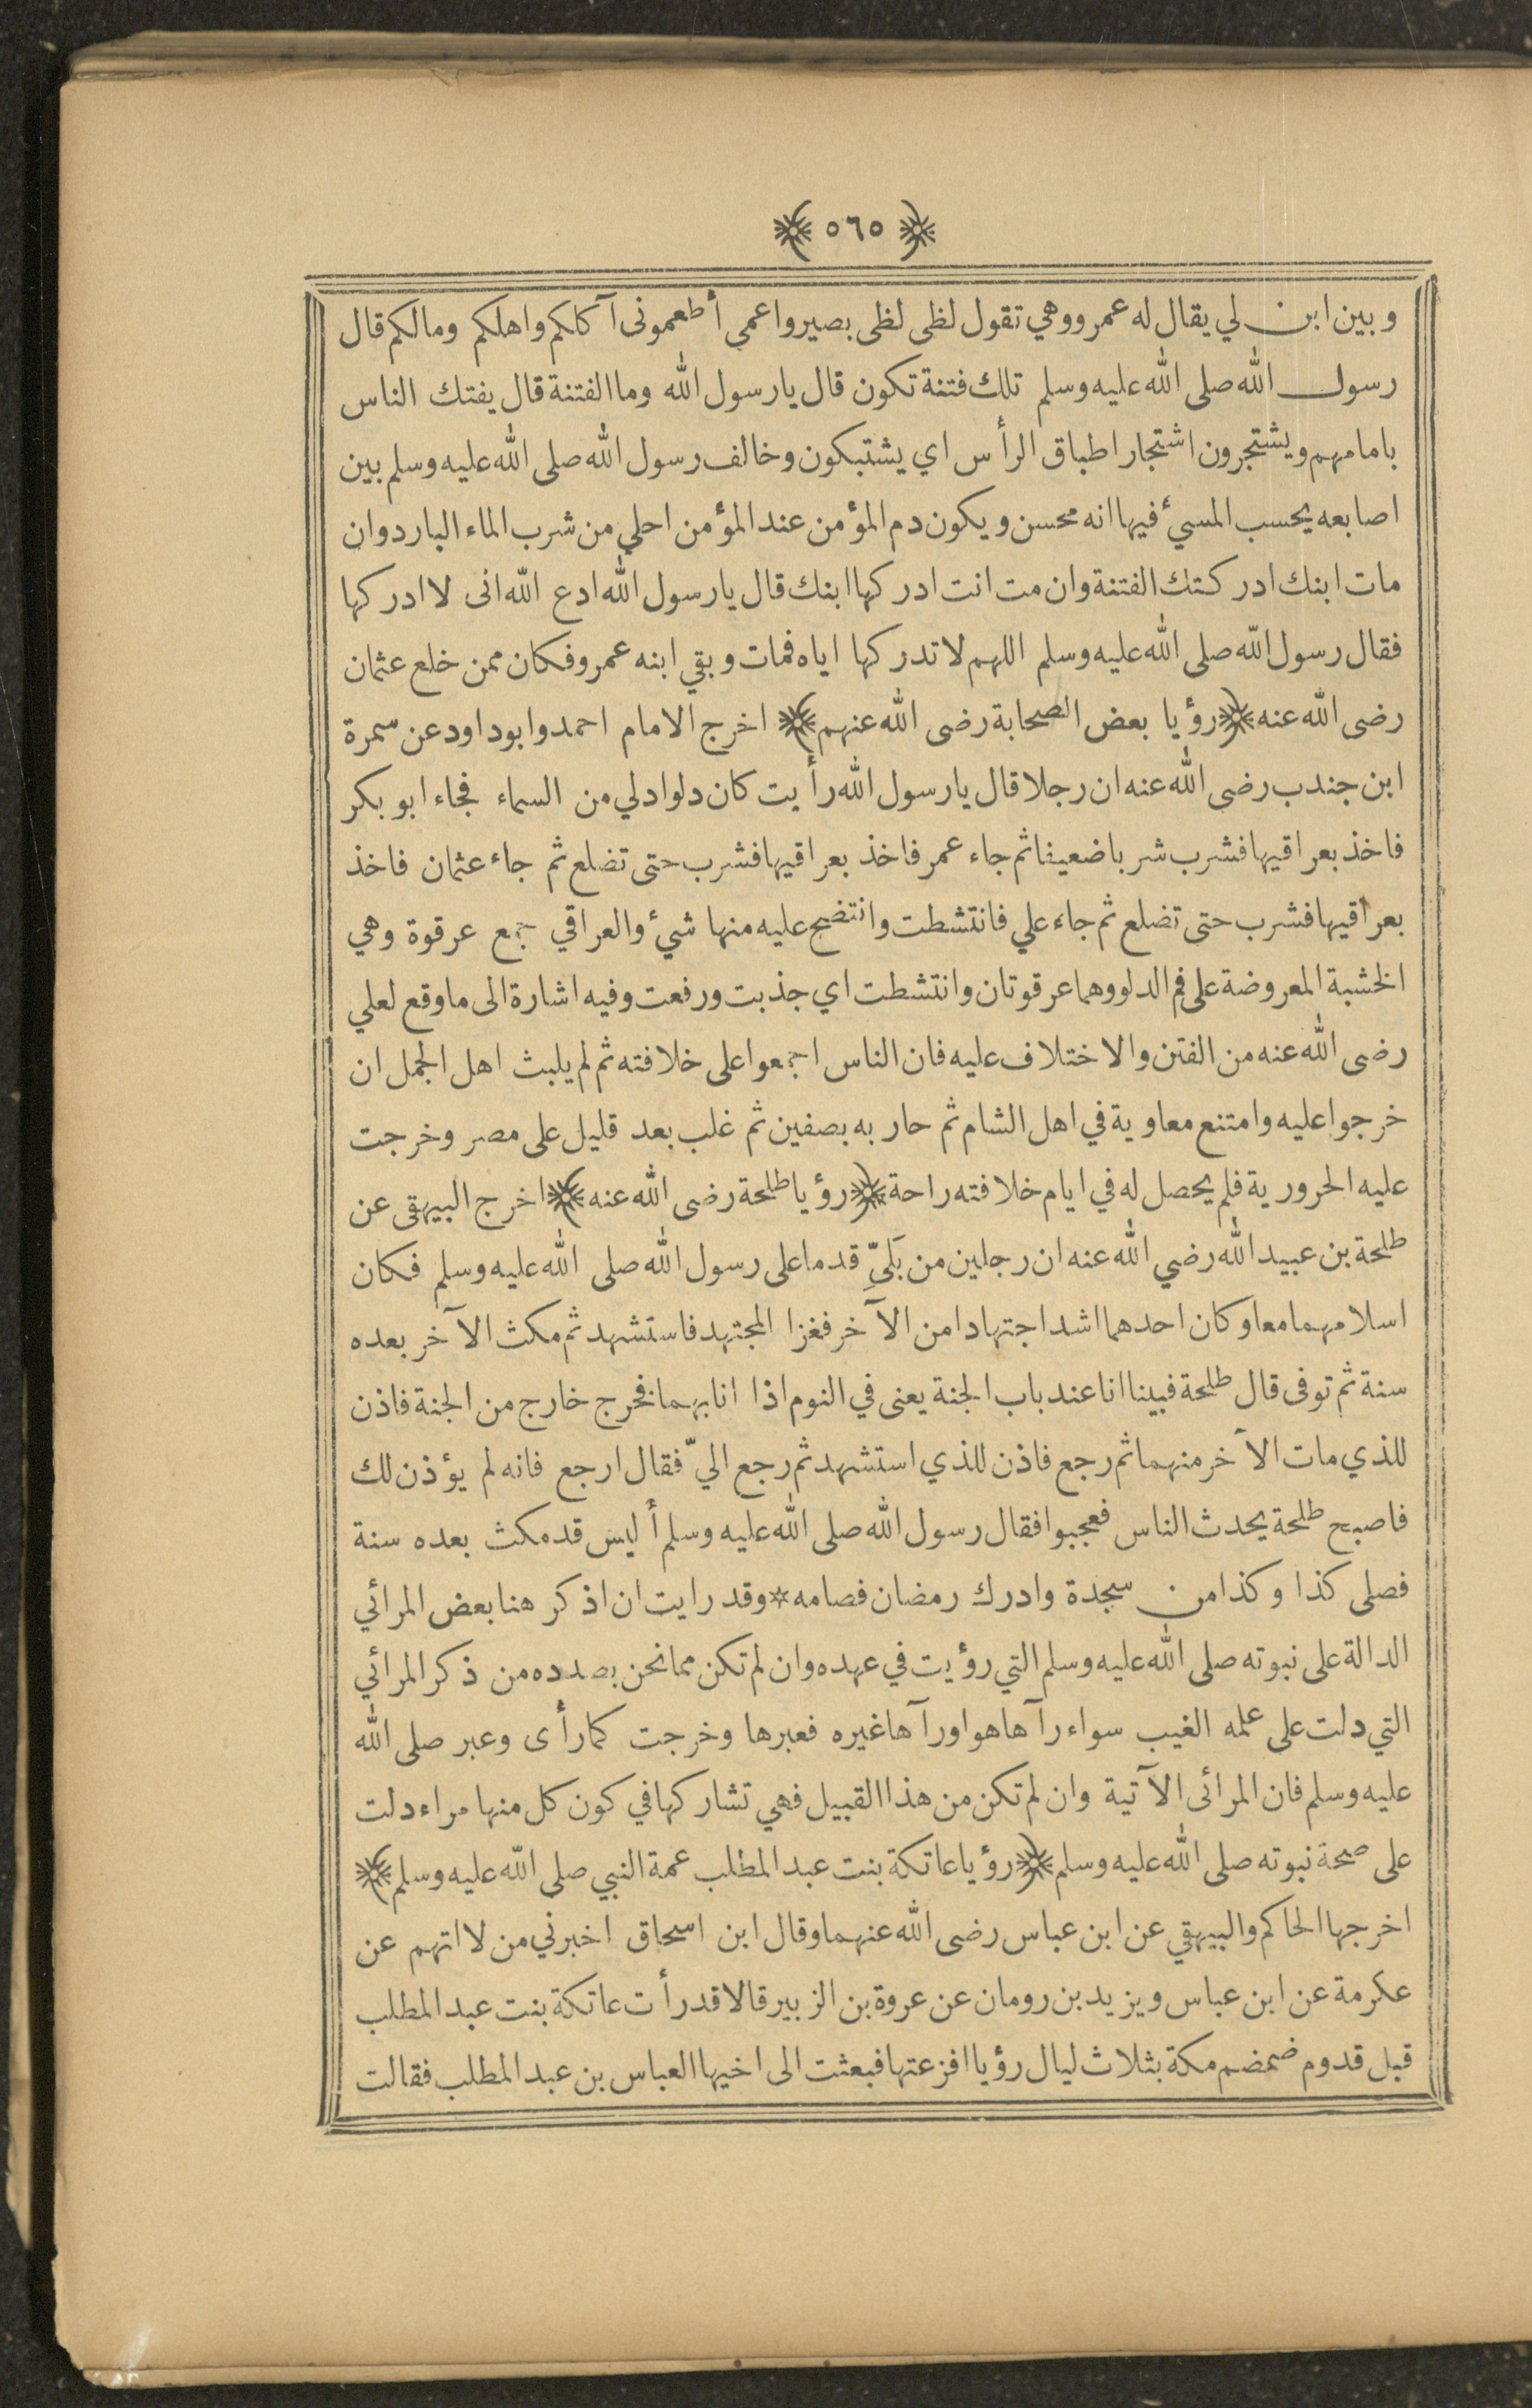 ﴿ ٥٦٥ ﴾
وبين ابن لي يقال له عمرو وهي تقول لظى لظى بصير واعمي أطعموني آكلكم واهلكم ومالكم قال
رسول الله صلى الله عليه وسلم تلك فتنة تكون قال يارسول الله وما الفتنة قال يفتك الناس
بامامهم ويشتجرون اشتجار اطباق الرأس اي يشتبكون وخالف رسول الله صلى الله عليه وسلم بين
اصابعه يحسب المسيئ فيها انه محسن ويكون دم المؤمن عند المؤمن احلي من شرب الماء البارد وان
مات ابنك ادركتك الفتنة وان مت انت ادركها ابنك قال يارسول الله ادع الله انى لا ادركها
فقال رسول الله صلى الله عليه وسلم اللهم لا تدركها اياه فمات وبقي ابنه عمرو فكان ممن خلع عثمان
رضى الله عنه ﴿رؤيا بعض الصحابة رضى الله عنهم﴾ اخرج الامام احمد وابوداود عن سمرة
ابن جندب رضى الله عنه ان رجلا قال يارسول الله رأيت كان دلوا دلي من السماء فجاء ابو بكر
فاخذ بعراقيها فشرب شربا ضعيفا ثم جاء عمر فاخذ بعراقيها فشرب حتى تضلع ثم جاء عثمان فاخذ
بعراقيها فشرب حتى تضلع ثم جاء علي فانتشطت وانتضح عليه منها شيئ والعراقي جمع عرقوة وهي
الخشبة المعروضة على فم الدلو وهما عرقوتان وانتشطت اي جذبت ورفعت وفيه اشارة الى ما وقع لعلي
رضى الله عنه من الفتن والاختلاف عليه فان الناس اجمعوا على خلافته ثم لم يلبث اهل الجمل ان
خرجوا عليه وامتنع معاوية في اهل الشام ثم حاربه بصفين ثم غلب بعد قليل على مصر وخرجت
عليه الحرورية فلم يحصل له في ايام خلافته راحة ﴿رؤيا طلحة رضى الله عنه﴾ اخرج البيهقى عن
طلحة بن عبيد الله رضي الله عنه ان رجلين من بَلَيِّ قدما على رسول الله صلى الله عليه وسلم فكان
اسلامهما معا وكان احدهما اشد اجتهادا من الآخر فغزا المجتهد فاستشهد ثم مكث الآخر بعده
سنة ثم توفى قال طلحة فبينا انا عند باب الجنة يعنى في النوم اذا انا بهما فخرج خارج من الجنة فاذن
للذي مات الآخر منهما ثم رجع فاذن للذي استشهد ثم رجع اليّ فقال ارجع فانه لم يؤذن لك
فاصبح طلحة يحدث الناس فعجبوا فقال رسول الله صلى الله عليه وسلم أليس قد مكث بعده سنة
فصلى كذا وكذا من سجدة وادرك رمضان فصامه * وقد رايت ان اذكر هنا بعض المرائي
الدالة على نبوته صلى الله عليه وسلم التي رؤيت في عهده وان لم تكن مما نحن بصدده من ذكر المرائي
التي دلت على علمه الغيب سواء رآها هو او رآها غيره فعبرها وخرجت كما رأى وعبر صلى الله
عليه وسلم فان المرائى الآتية وان لم تكن من هذا القبيل فهي تشاركها في كون كل منها مراء دلت
على صحة نبوته صلى الله عليه وسلم ﴿رؤيا عاتكة بنت عبد المطلب عمة النبي صلى الله عليه وسلم﴾
اخرجها الحاكم والبيهقي عن ابن عباس رضى الله عنهما وقال ابن اسحاق اخبرني من لا اتهم عن
عكرمة عن ابن عباس ويزيد بن رومان عن عروة بن الزبير قالا قد رأت عاتكة بنت عبد المطلب
قبل قدوم ضمضم مكة بثلاث ليال رؤيا افزعتها فبعثت الى اخيها العباس بن عبد المطلب فقالت